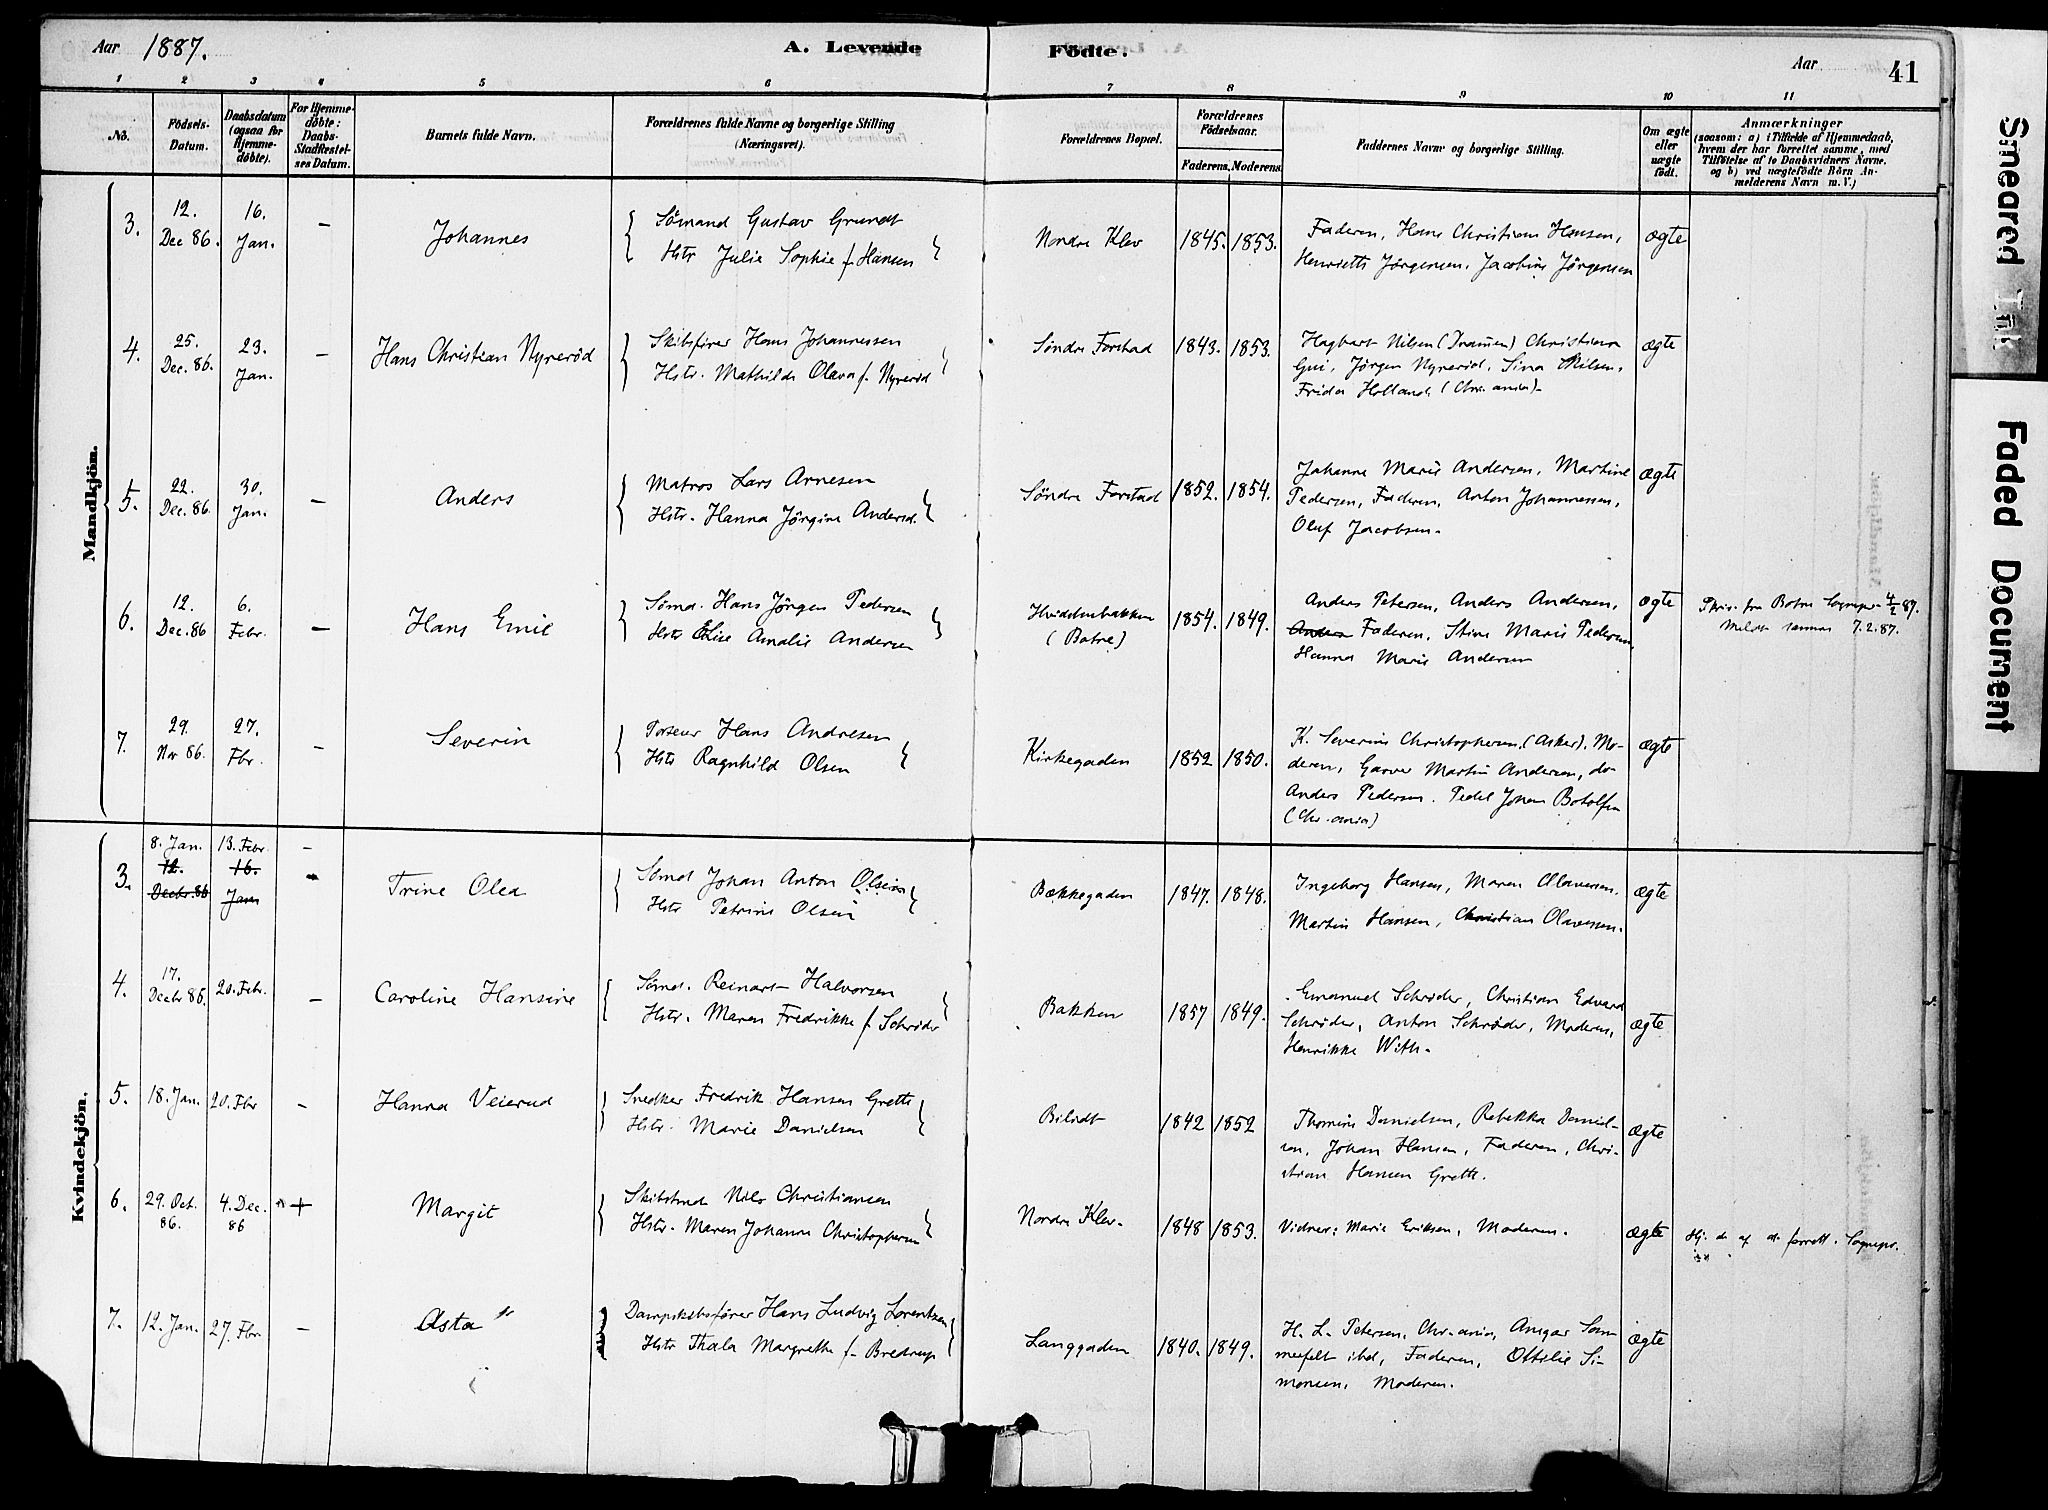 Aar 1887.
A. Levende Födte.
Aar
41
1 2 3 4 5 6 7 8 9 10 11
No.
Födsels-Datum.
Daabsdatum (ogsaa for Hjemme-döbte).
For Hjemme-döbte: Daabs-Stadfæstel-ses Datum.
Barnets fulde Navn.
Forældrenes fulde Navne og borgerlige Stilling (Næringsvei).
Forældrenes Bopæl.
Forældrenes Födselsaar.
Faderens. Moderens.
Faddernes Navne og borgerlige Stilling.
Om ægte eller uægte födt.
Anmærkninger
(saasom: a) i Tilfælde af Hjemmedaab, hvem der har forrettet samme, med Tilföielse af to Daabsvidners Navne. og b) ved uægtefödte Börn An-melderens Navn m. V.)
Mandkjön.
3. 12. Dec 86. 16. Jan. – Johannes
Sömand Gustav Grundt
Hstr Julie Sophie f. Hansen
Nordre Klev 1845. 1853.
Faderen, Hans Christian Hansen,
Henriette Jørgensen, Jacobine Jørgensen
ægte
4. 25. Dec. 86. 23. Jan. – Hans Christian Nyrerød
Skibsfører Hans Johannessen
Hstr. Mathilde Olava f. Nyrerød
Søndre Forstad 1843. 1853.
Hagbart Nilsen (Drammen) Christiane
Gui, Jørgen Nyrerød, Sina Nilsen,
Frida Holland (Chr.ania).
ægte
5. 22. Dec. 86. 30. Jan. – Anders
Matros Lars Arnesen
Hstr. Hanna Jørgine Andersd.
Søndre Forstad 1852. 1854.
Johanne Marie Andersen, Martine
Pedersen, Faderen, Anton Johannessen,
Oluf Jacobsen.
ægte
6. 12. Dec. 86 6. Febr. – Hans Emil
Sömd. Hans Jørgen Pedersen
Hstr Elise Amalie Andersen
Hvidstenbakken (Botne) 1854. 1849.
Anders Petersen, Anders Andersen,
Anders Faderen, Stine Marie Pedersen,
Hanna Marie Andersen
ægte
fra Botne Sognepr. 4/2 87.
Meldt samme 7.2.87.
7. 29. Nov 86. 27. Fbr. – Severin
Hans Andresen
Hstr Ragnhild Olsen
Kirkegaden 1852 1850.
K. Severine Christophersen, (Asker). Mo-
deren, Garver Martin Andersen, do
Anders Pedersen. Pedel Johan Botolfsen
(Chr.ania)
ægte
Kvindekjön.
3. 8. Jan. 12. Decbr. 86 13. Febr. 16. Jan – Trine Olea
Sömd Johan Anton Olsen
Hstr Petrine Olsen
Bækkegaden 1847. 1848.
Ingeborg Hansen, Maren Olavesen.
Martin Hansen, Christian Olavessen.
ægte
4. 17. Decbr 86. 20. Febr. – Caroline Hansine
Sömd. Reinart Halvorsen
Hstr. Maren Fredrikke f. Schrøder
Bakken 1857 1849.
Emanuel Schrøder, Christian Edvard
Schrøder, Anton Schrøder, Moderen,
Henrikke With.
ægte
5. 18. Jan. 20. Fbr – Hanna Veierud
Snedker Fredrik Hansen Grette
Hstr. Marie Danielsen
Bilidt 1842 1852
Thomine Danielsen, Rebekka Daniel-
sen, Johan Hansen, Faderen, Chri-
stian Hansen Grette.
ægte
6. 29. Oct. 86. 4. Dec. 86 + Margit
Nils Christiansen
Hstr. Maren Johanne Christophersen
Nordre Klev. 1848 1853.
Vidner: Marie Eriksen, Moderen.
ægte
Hj. d. af forrett. Sognepr.
7. 12. Jan. 27. Fbr. – Asta
Dampskibsfører Hans Ludvig Lorentzen
Hstr Thala Margrethe f. Bredrup
Langgaden 1840. 1849.
H. L. Petersen, Chr.ania, Ansgar Som-
merfelt ibd, Faderen, Ottilie Si-
monsen, Moderen.
ægte
Smeared Ink
Faded Document